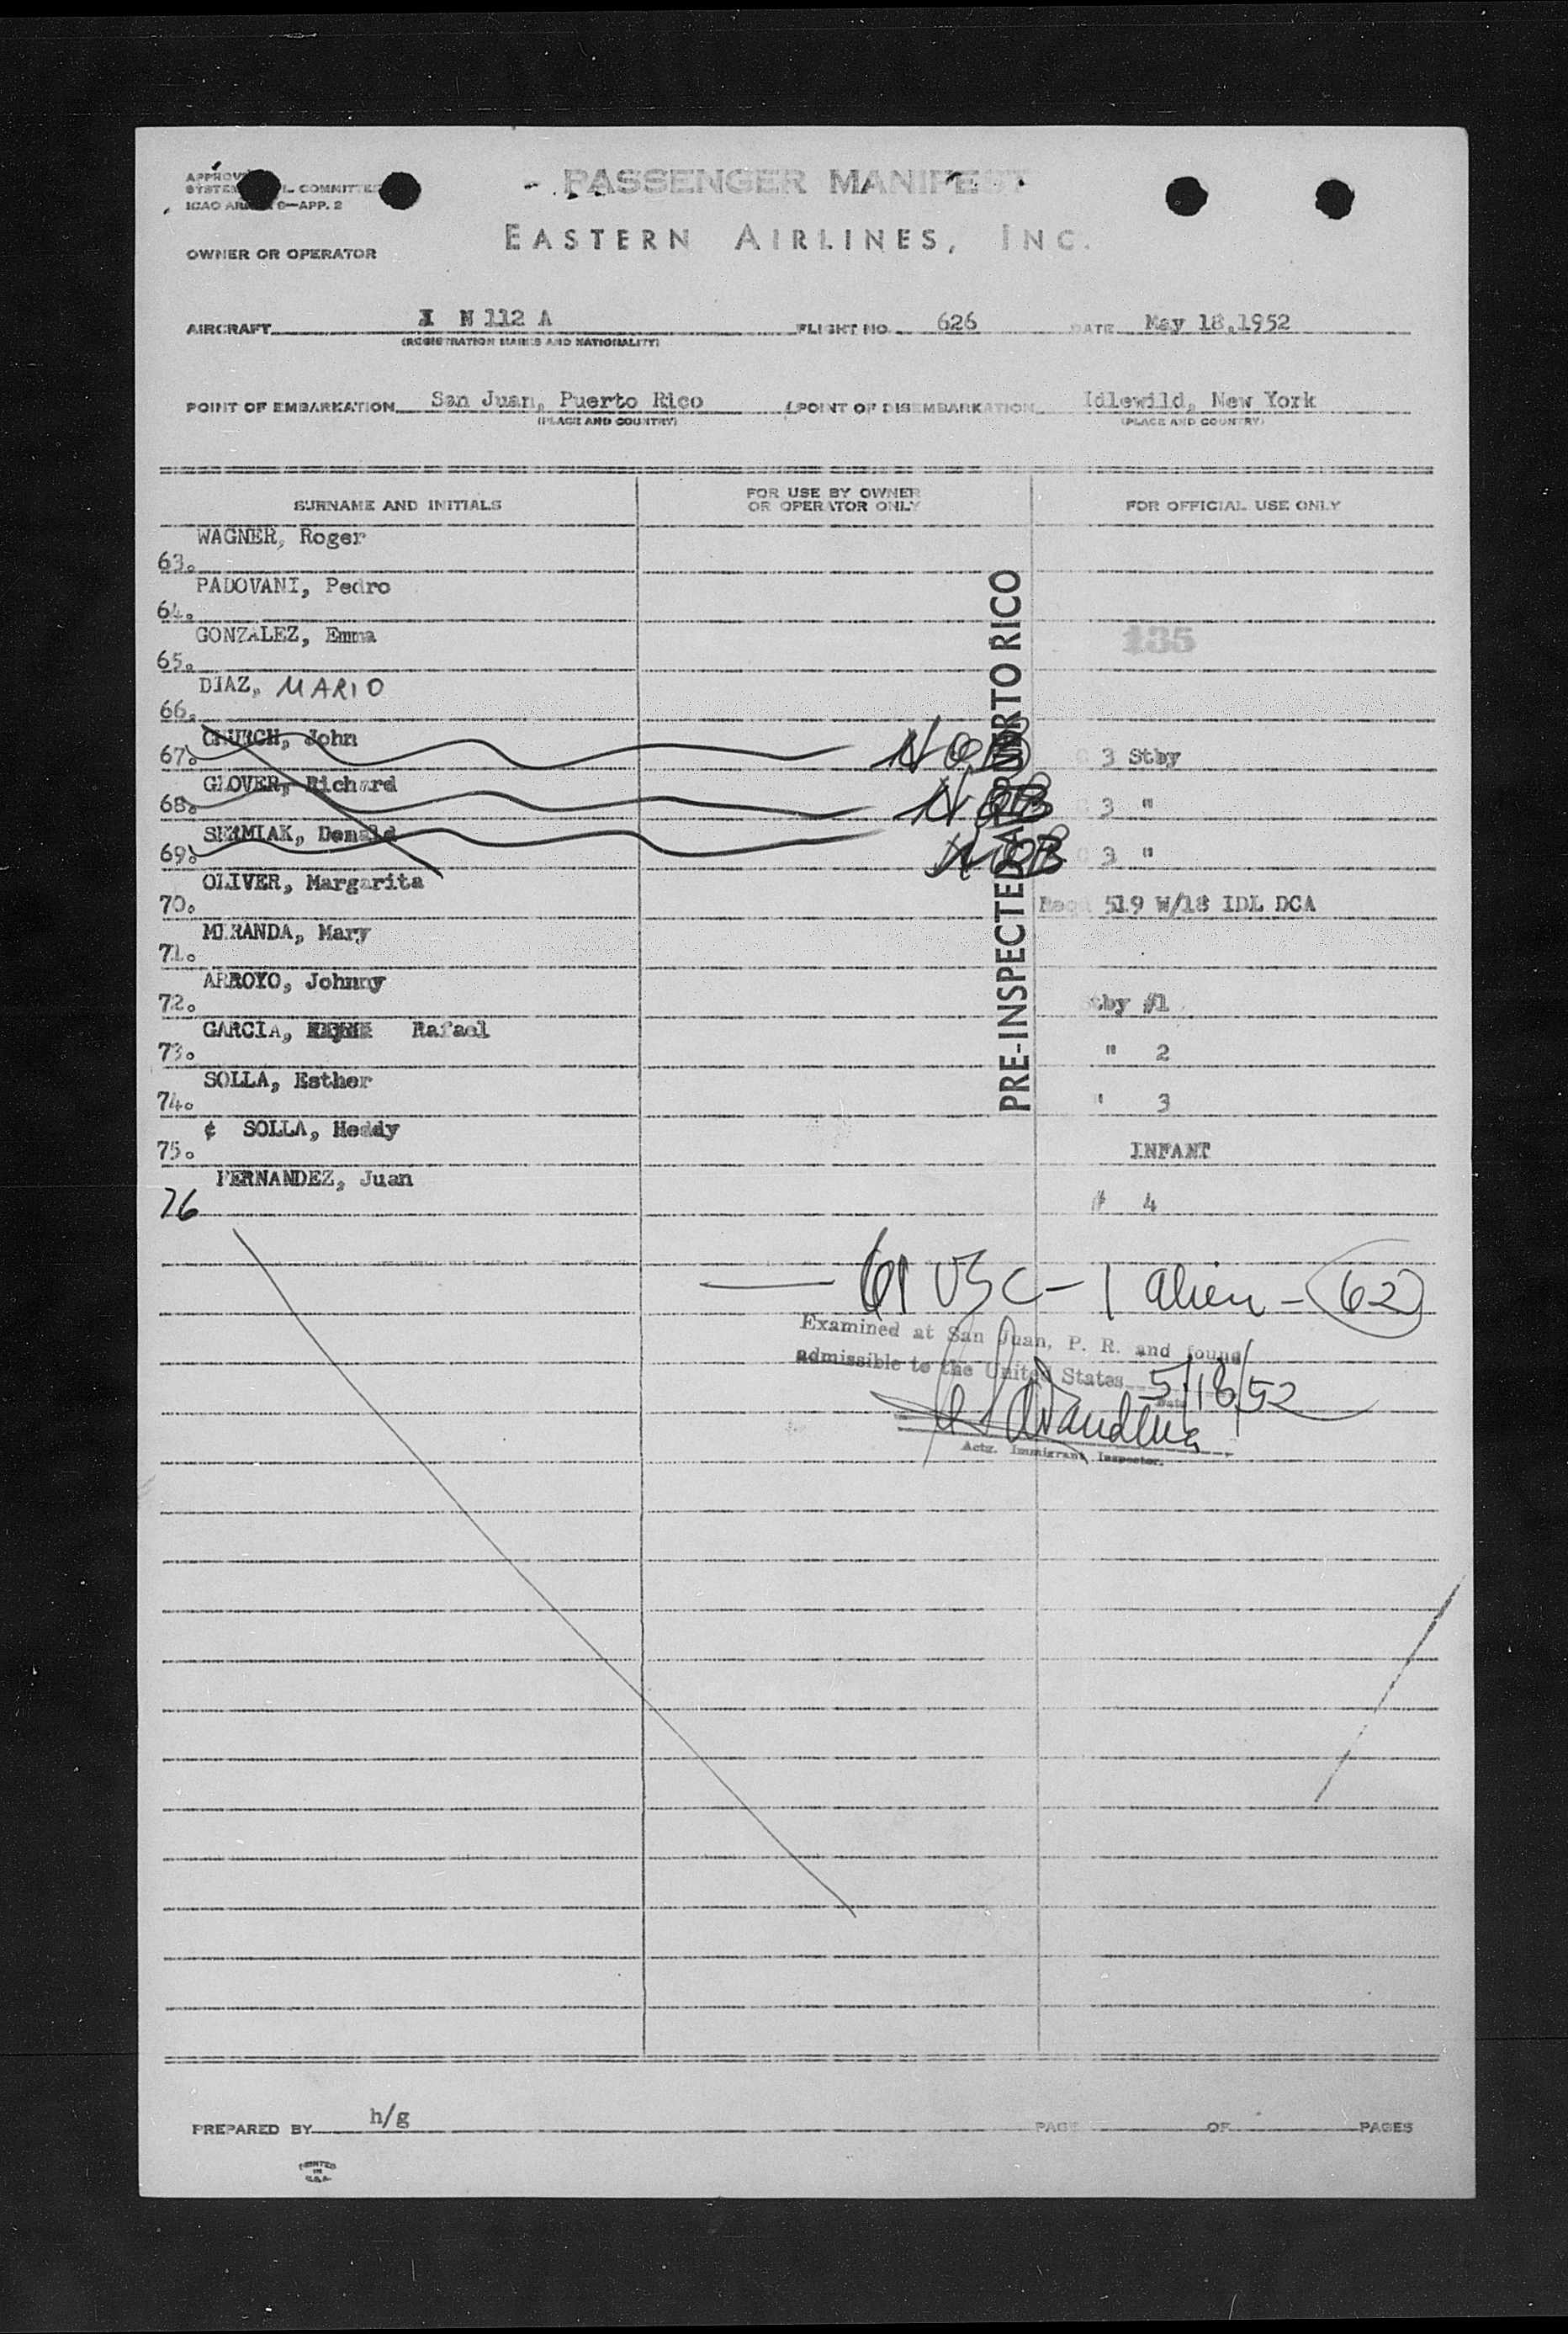 PASSENGER MANIFEST
COMMITTEE
ICAO 9—APP. 2
EASTERN AIRLINES, INC.
OWNER OR OPERATOR
AIRCRAFT N 112 A FLIGHT NO. 626 DATE May 18,1952
(REGISTRATION MARKS AND NATIONALITY)
POINT OF EMBARKATION San Juan, Puerto Rico (POINT OF DISEMBARKATION Idlewild, New York
(PLACE AND COUNTRY) (PLACE AND COUNTRY)
SURNAME AND INITIALS FOR USE BY OWNER OR OPERATOR ONLY FOR OFFICIAL USE ONLY
63. WAGNER, Roger
64. PADOVANI, Pedro
65. GONZALEZ, Emma 135
66. DIAZ, MARIO
67. CHURCH, John NOB 3 Stby
68. GLOVER, Richard NOB 3 "
69. SERMIAK, Donald NOB 3 "
70. OLIVER, Margarita 519 W/18 IDL DCA
71. MIRANDA, Mary
72. ARROYO, Johnny Stby #1
73. GARCIA, Rafael " 2
74. SOLLA, Esther " 3
75. ¢ SOLLA, Heddy INFANT
76 FERNANDEZ, Juan # 4
PRE-INSPECTED AT PUERTO RICO
61 USC - 1 alien - 62
Examined at San Juan, P. R. and found
admissible to the United States 5/18/52
Date
Actg. Immigrant Inspector.
PREPARED BY h/g PAGE OF PAGES
PRINTED
IN
U.S.A.